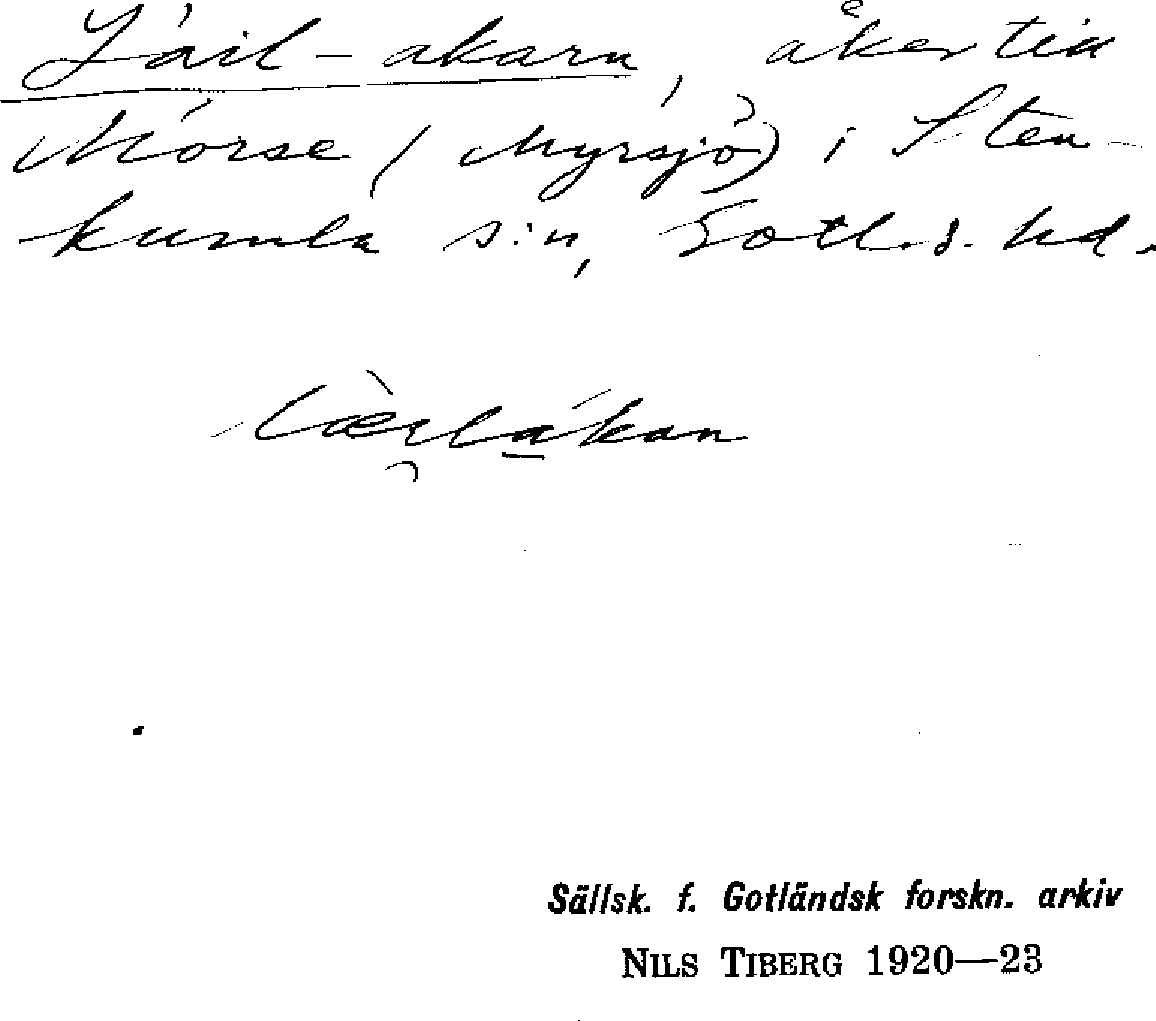 Läil-akarn, åker till
Mörse (Myrsjö) i Sten-
kumla s:n, Gotl. s. hd.
lærlakan
Sällsk. f. Gotländsk forskn. arkiv
NILS TIBERG 1920—23